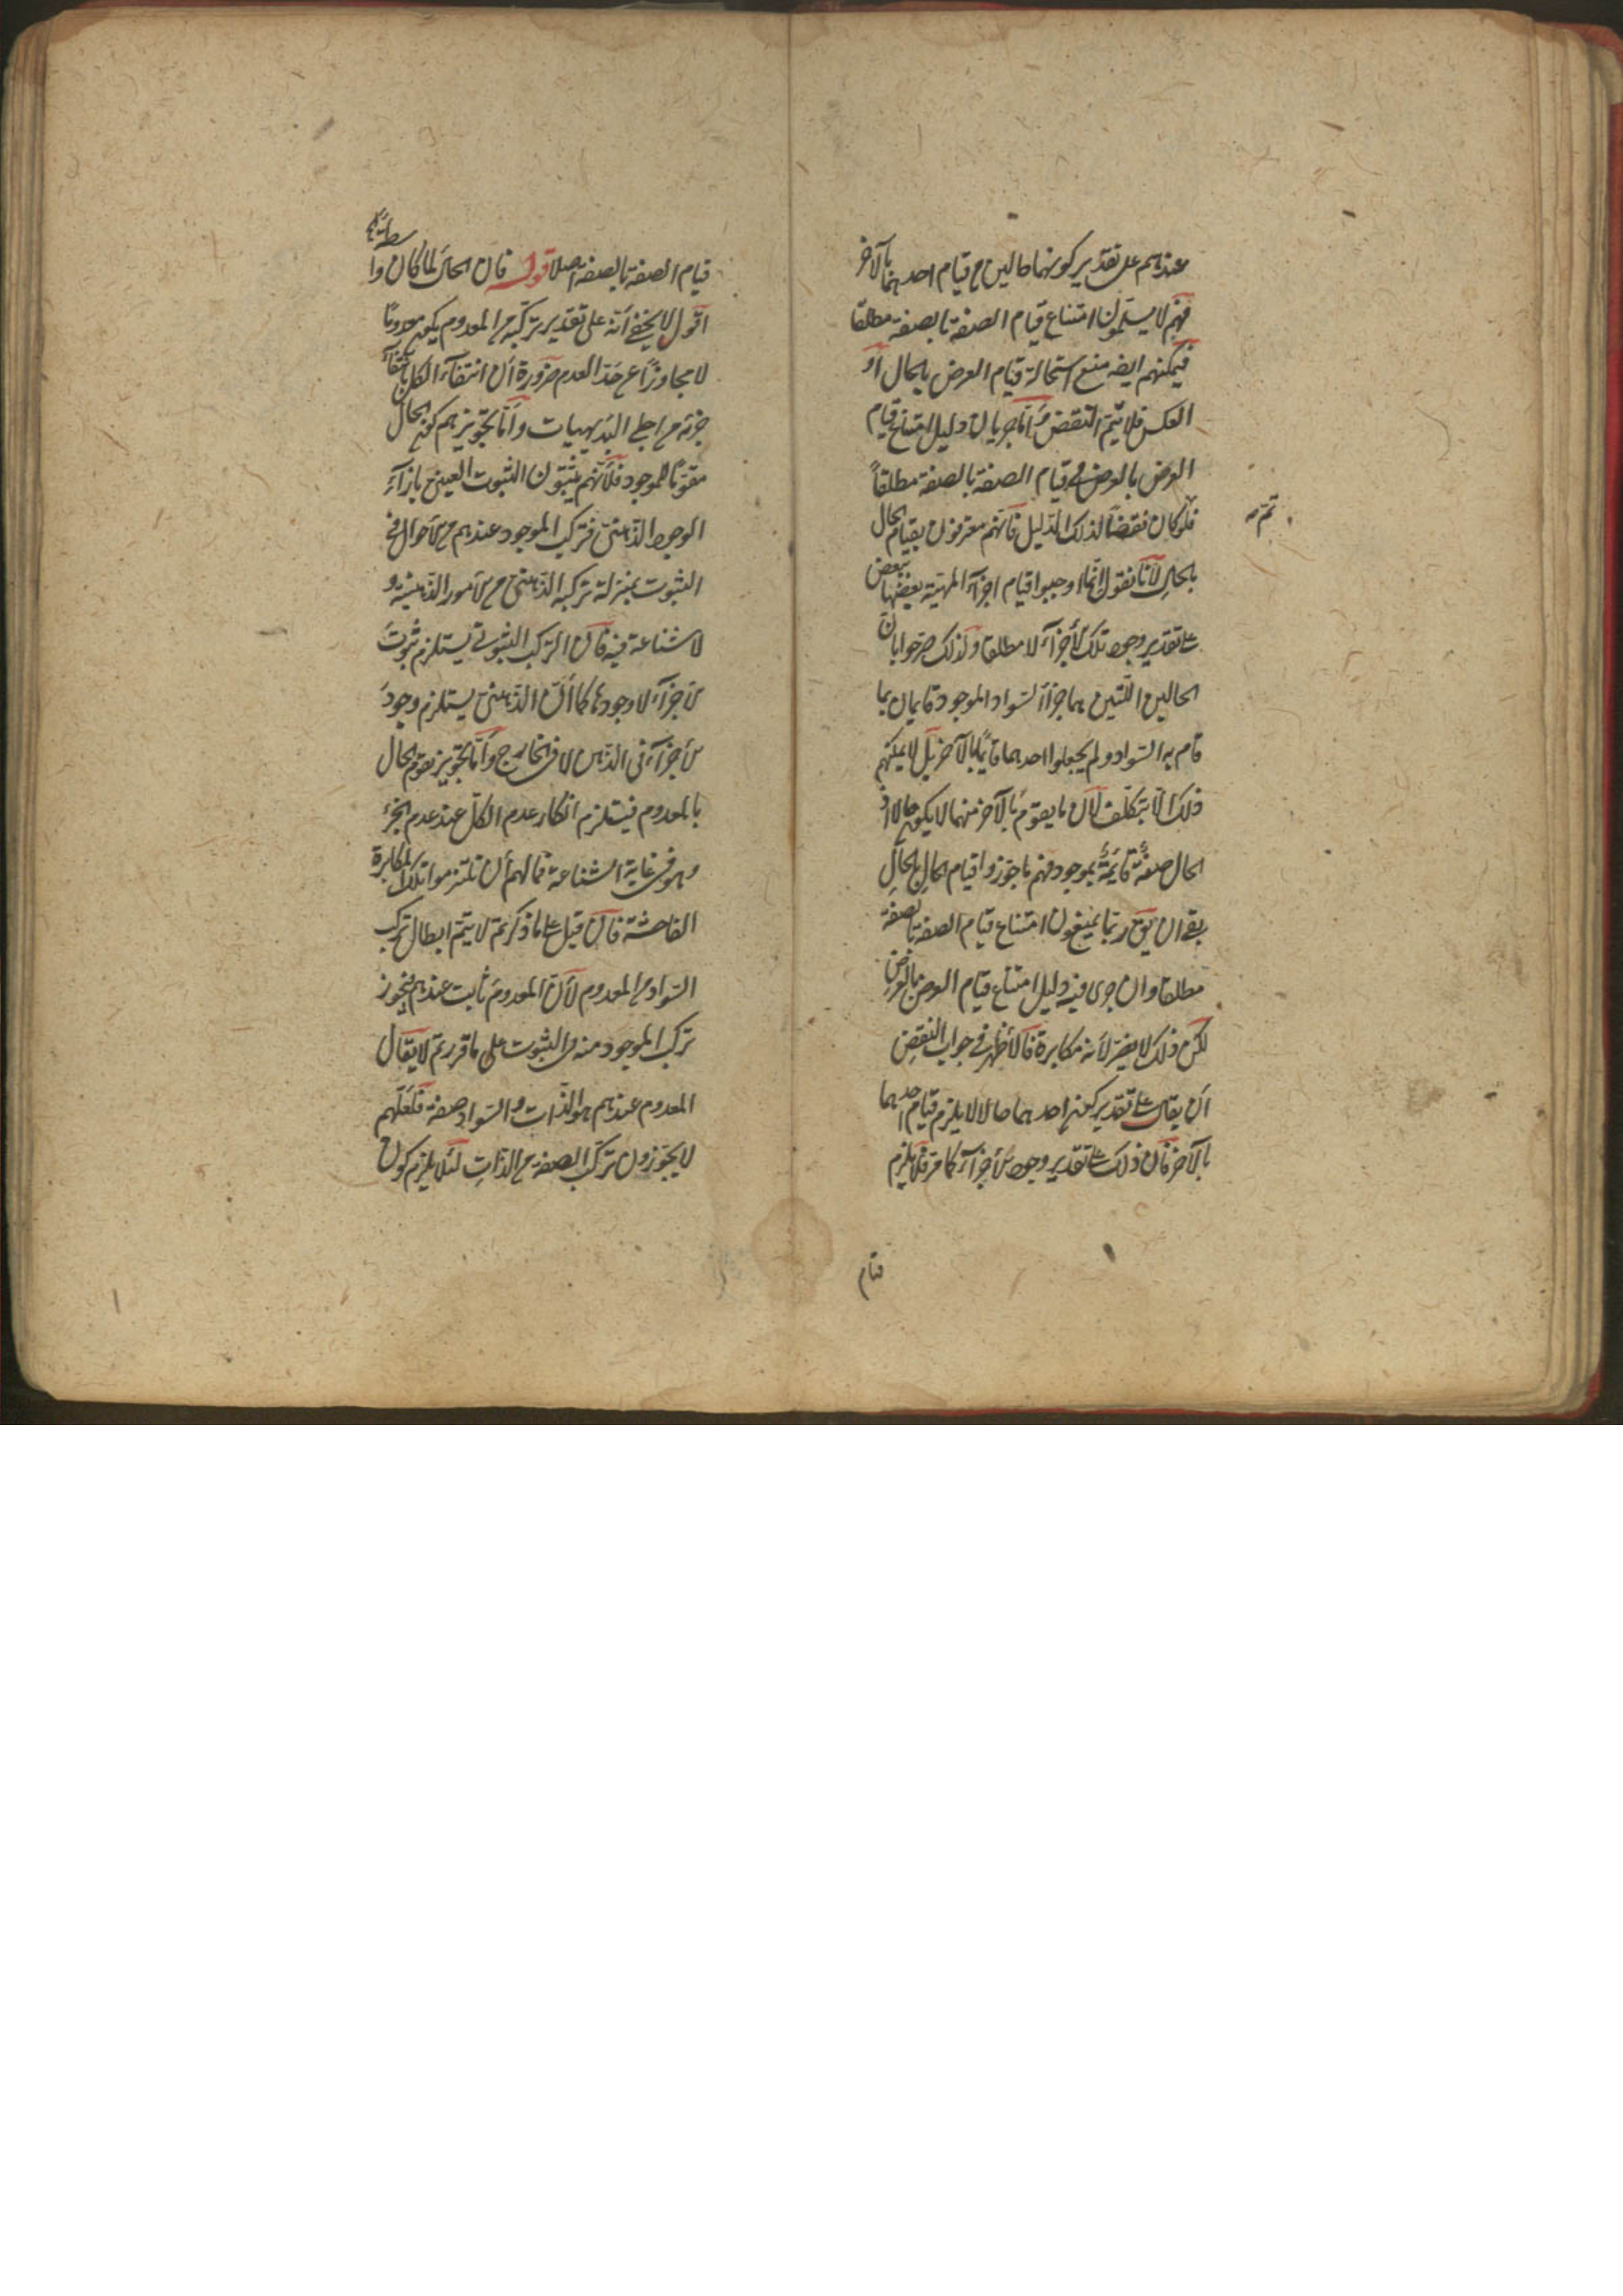 عندهم على تقدير كونهما حالين من قيام احدهما بالآخر
فهم لا يسلمون امتناع قيام الصفة بالصفة مطلقا
فيمكنهم ايضه منع استحالة قيام العرض بالحال او
العكس فلا يتم النقض واما جريان دليل امتناع قيام
العرض بالعرض في قيام الصفة بالصفة مطلقاً
فلو كان نقضاً لذلك الدليل فانهم معترفون بقيام الحال
بالحال لأنا نقول انما اوجبوا قيام اجزآء المهية بعضها ببعض
على تقدير وجود تلك الأجزآء لا مطلقا ولذلك صرحوا بان
الحالين اللتين هما جزآ السواد الموجود قايمان بما
قام به السواد ولم يجعلوا احدهما قايماً بالآخر بل لا يمكنهم
ذلك الا بتكلف لان ما يقوم بالآخر منهما لا يكون حالا اذ
الحال صفة قايمة بموجود فهم ما جوزوا قيام الحال بالحال
بقي ان يق ربما يمنعون امتناع قيام الصفة بالصفة
مطلقا وان جرى فيه دليل امتناع قيام العرض بالعرض
لكن ذلك لا يضر لأنه مكابرة فالأظهر في جواب النقض
ان يقال على تقدير كون احدهما حالا لا يلزم قيام احدهما
بالآخر فان ذلك على تقدير وجود الأجزآء كما مر فلا يلزم
قيام
قيام الصفة بالصفة اصلا قوله فان الحال لما كان واسطة
اقول لا يخفى أنه على تقدير تركبه من المعدوم يكون معدوما
لا مجاوزاً عن حد العدم ضرورة أن انتفآء الكل بانتفآء
جزئه من اجلى البديهيات وأما تجويزهم كون الحال
مقوماً للموجود فلأنهم يثبتون الثبوت العيني بازآء
الوجود الذهني فتركب الموجود عندهم من الأحوال في
الثبوت بمنزلة تركبه الذهني من الأمور الذهنية و
لا شناعة فيه فان التركب الثبوتي يستلزم ثبوت
الأجزآء لا وجودها كما أن الذهني يستلزم وجود
الأجزآء في الذهن لا في الخارج وأما تجويز تقوم الحال
بالمعدوم فيستلزم انكار عدم الكل عند عدم الجزء
وهو في غاية الشناعة فما لهم أن تلتزموا تلك المكابرة
الفاحشة فان قيل على ما ذكرتم لا يتم ابطال تركب
السواد من المعدوم لأن المعدوم ثابت عندهم فيجوز
تركب الموجود منه في الثبوت على ما قررتم لا يقال
المعدوم عندهم هو الذات والسواد صفة فلعلهم
لا يجوزون تركب الصفة من الذات لئلا يلزم كون